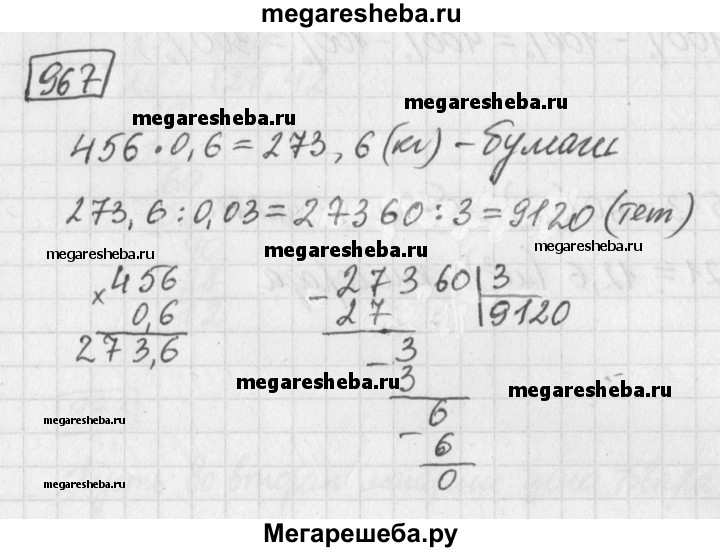 megaresheba.ru
967
megaresheba.ru megaresheba.ru
456 · 0,6 = 273,6 (кг) – бумаги
273,6 : 0,03 = 27360 : 3 = 9120 (тет)
megaresheba.ru megaresheba.ru
× 456
0,6
273,6
- 27360 | 3
27 | 9120
- 3
3
megaresheba.ru megaresheba.ru
6
- 6
0
megaresheba.ru megaresheba.ru
Мегарешеба.ру